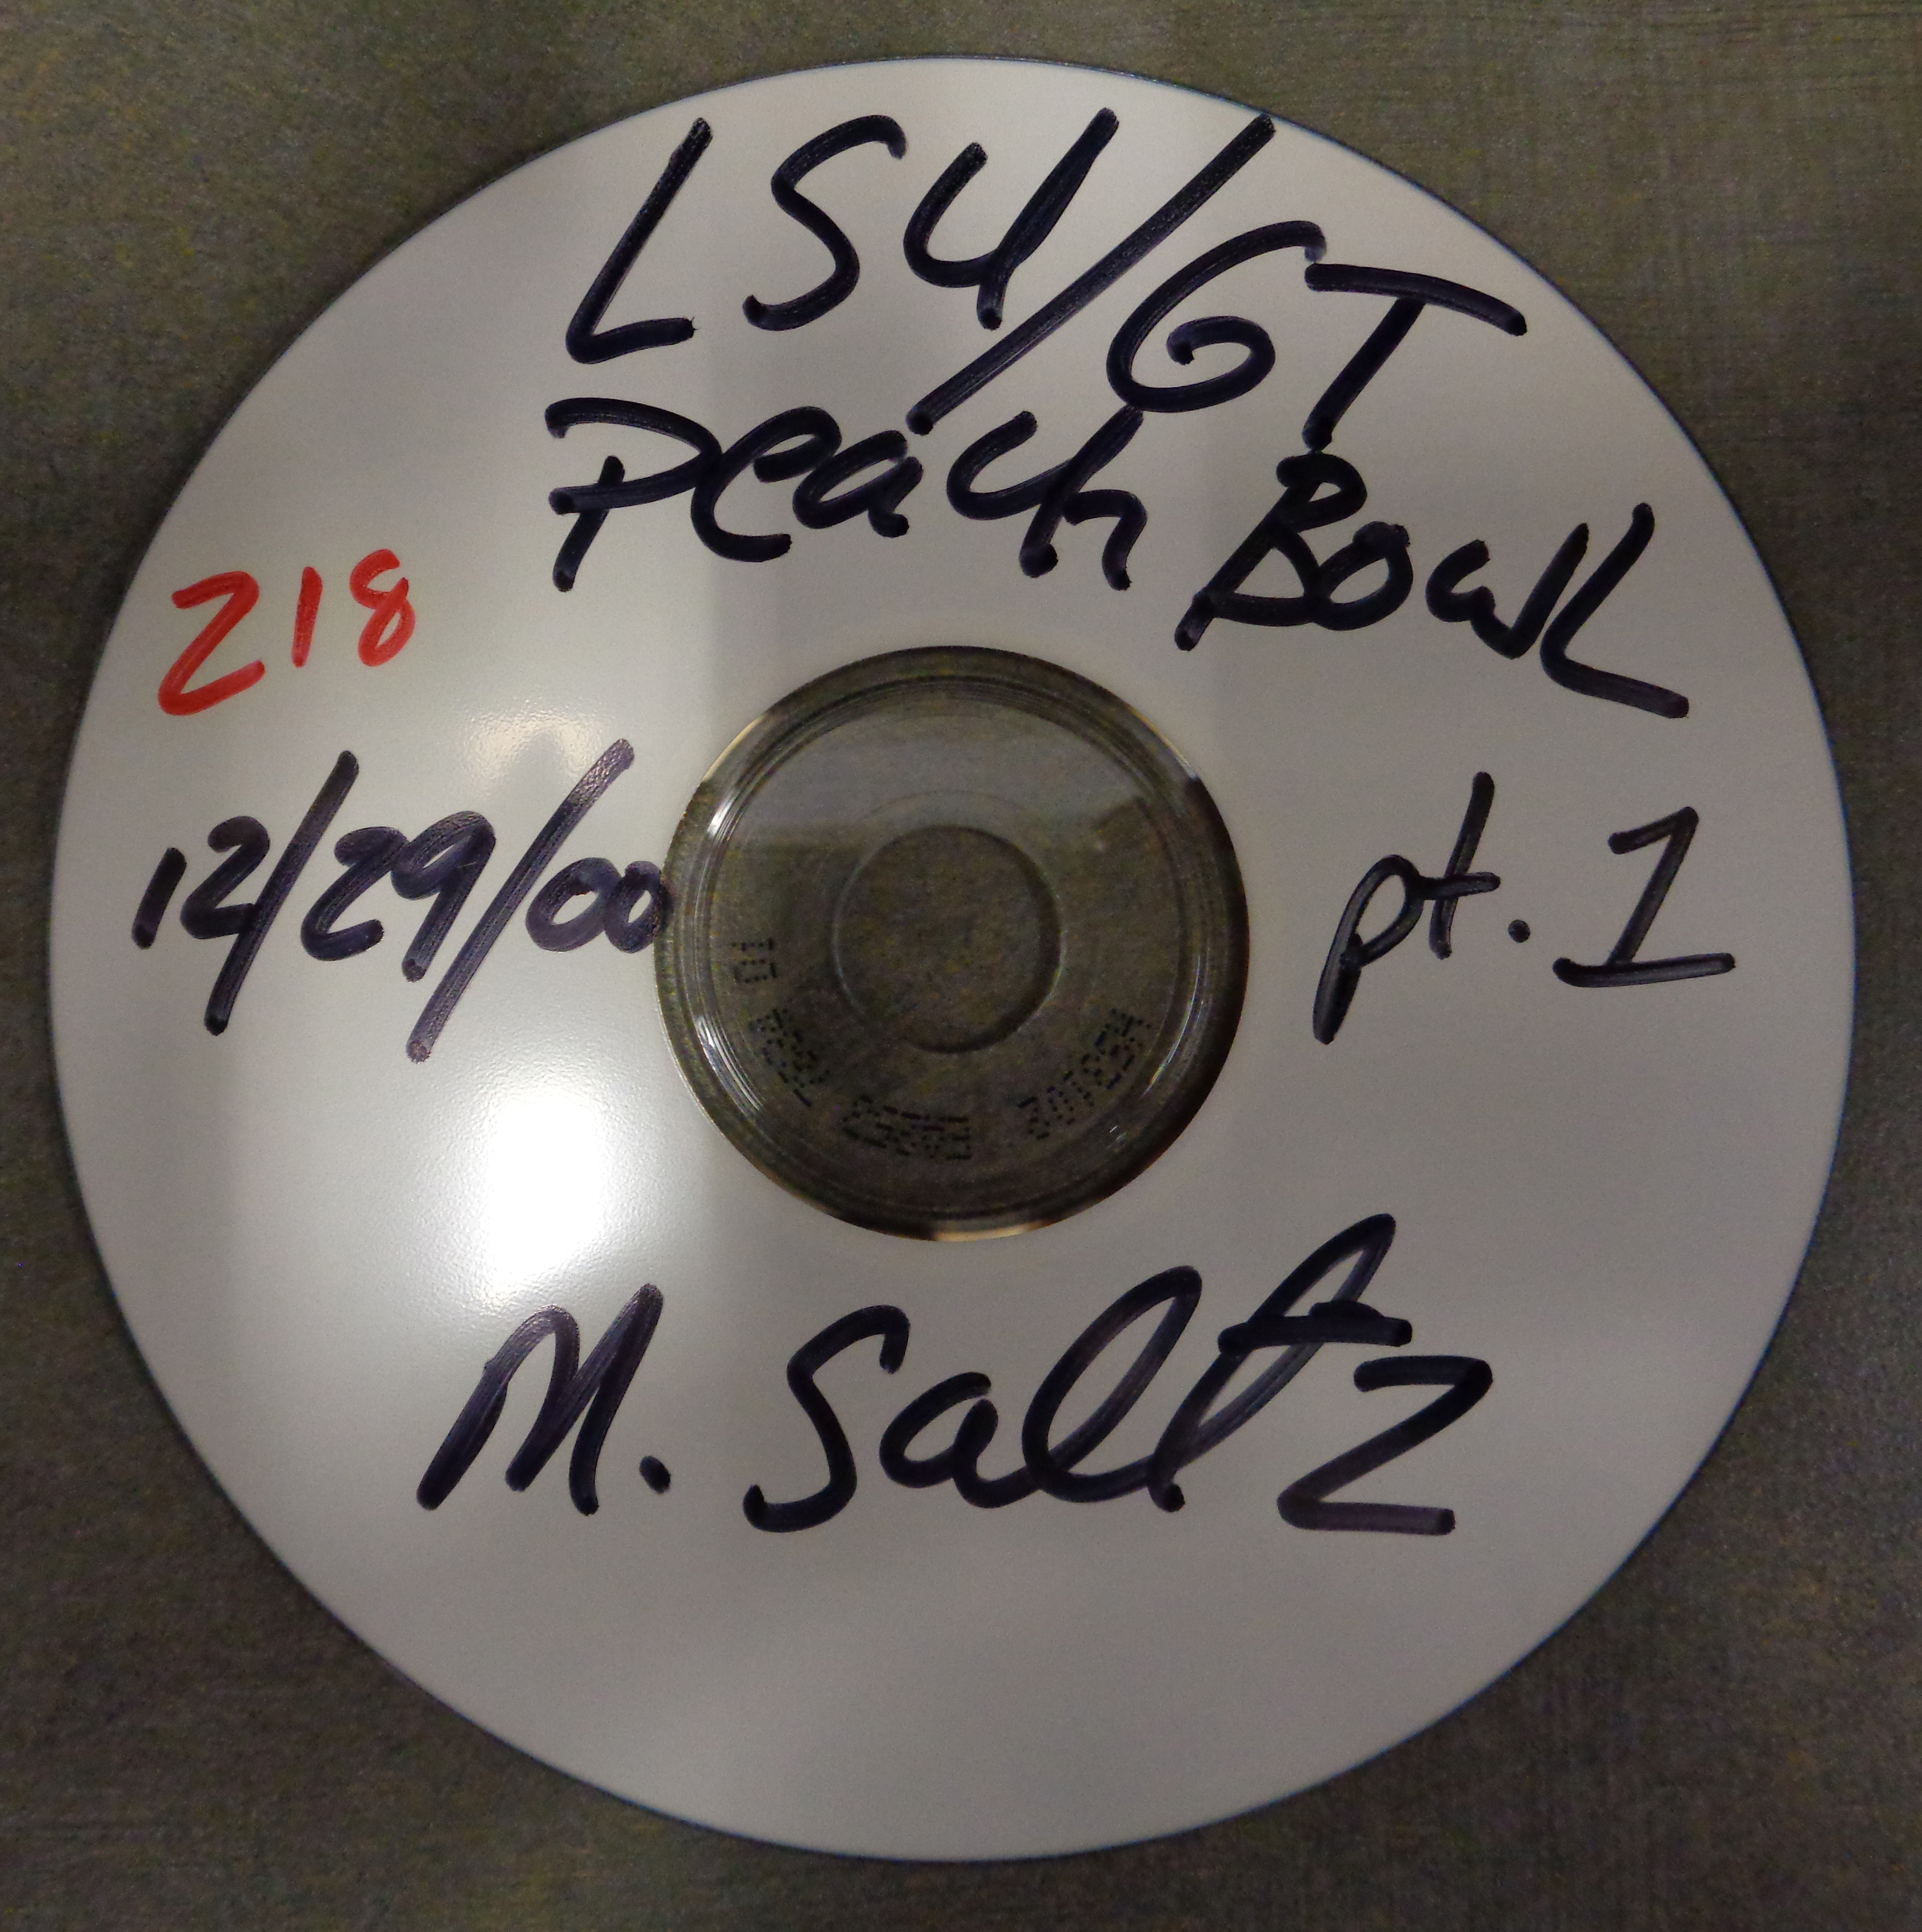 LSU/GT
Peach Bowl
218
12/29/00
pt. 1
M. Saltz